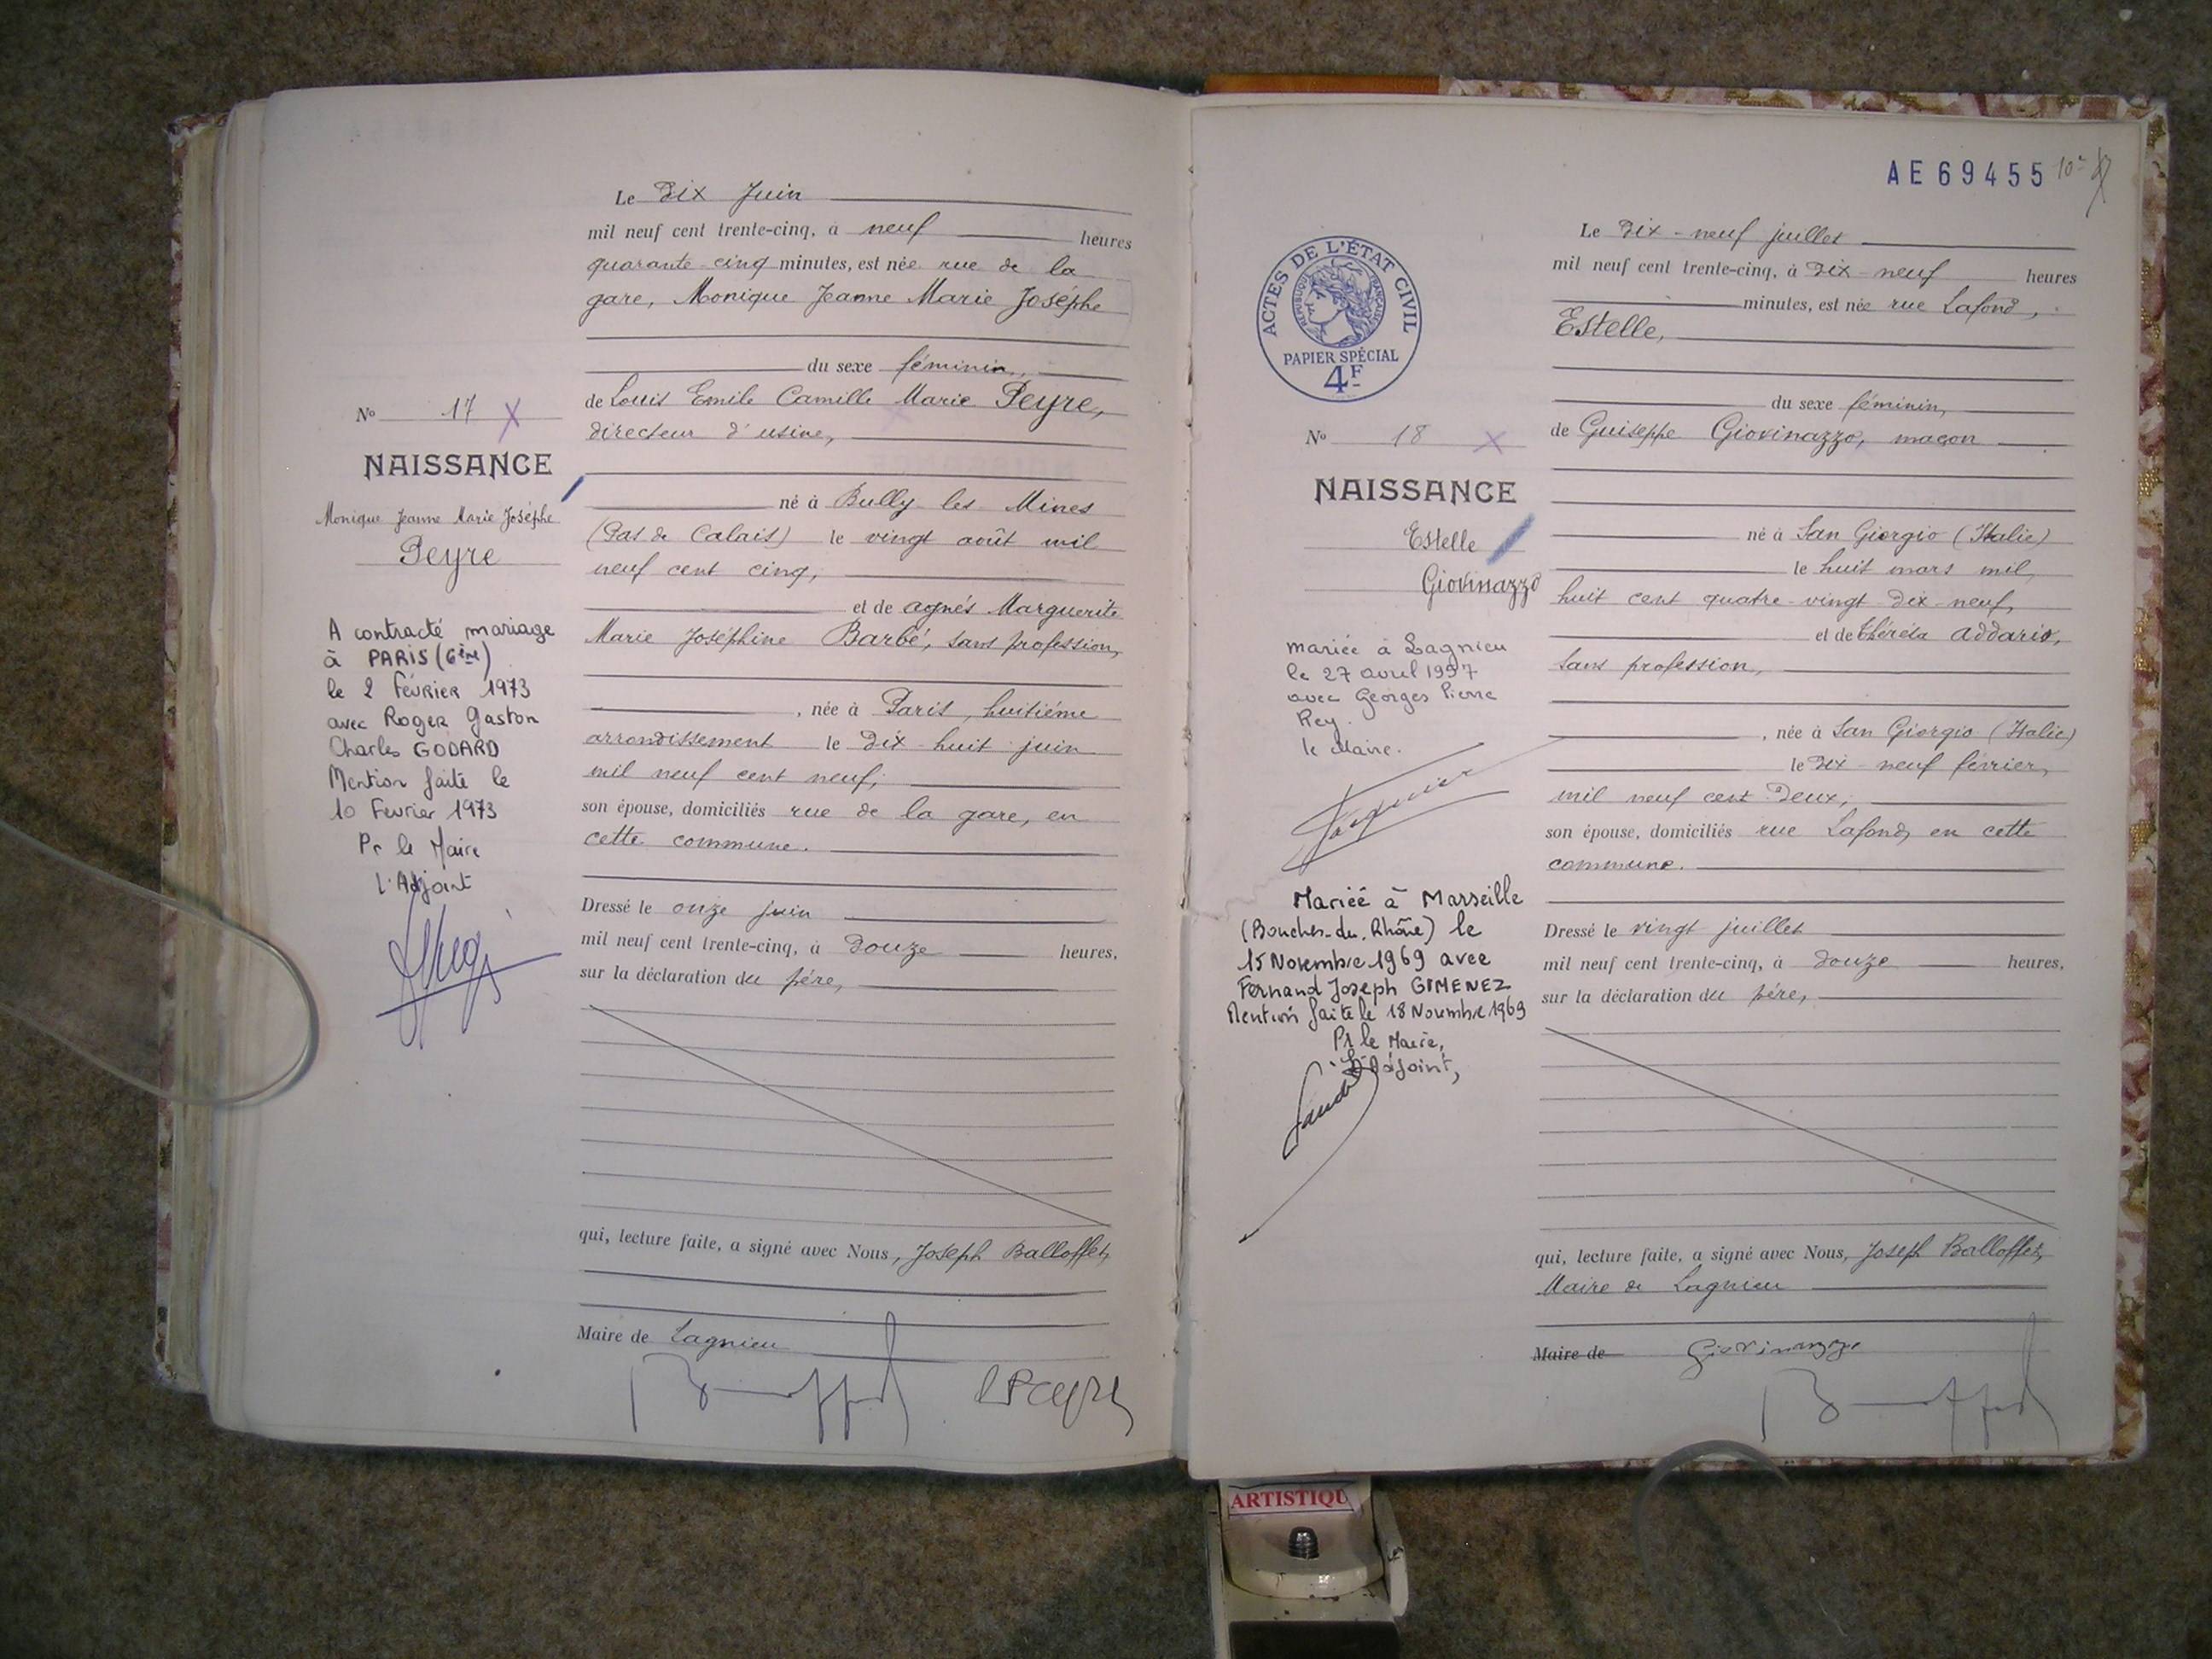 Le Dix Juin
mil neuf cent trente-cinq, à neuf heures
quarante cinq minutes, est née rue de la
gare, Monique Jeanne Marie Joséphe
du sexe féminin,
No 17 X
de Louis Emile Camille Marie Peyre,
directeur d'usine,
NAISSANCE
Monique Jeanne Marie Joséphe
Peyre
né à Bully les Mines
(Pas de Calais) le vingt août mil
neuf cent cinq,
et de agnés Marguerite
Marie Joséphine Barbé, sans profession,
, née à Paris, huitiéme
arrondissement le dix huit juin
mil neuf cent neuf,
son épouse, domiciliés rue de la gare, en
cette commune.
A contracté mariage
à PARIS (6ème)
le 2 Février 1973
avec Roger Gaston
Charles GODARD
Mention faite le
10 Fevrier 1973
Pr le Maire
L'Adjoint
Dressé le onze juin
mil neuf cent trente-cinq, à douze heures,
sur la déclaration du pére,
qui, lecture faite, a signé avec Nous, Joseph Balloffet,
Maire de Lagnieu
LPeyre
AE69455
Le Dix-neuf juillet
mil neuf cent trente-cinq, à dix-neuf heures
minutes, est née rue Lafond,
Estelle,
ACTES DE L'ÉTAT CIVIL
RÉPUBLIQUE FRANÇAISE
PAPIER SPÉCIAL
4F
du sexe féminin,
No 18 X
de Guiseppe Giovinazzo, maçon
NAISSANCE
Estelle
Giovinazzo
né à San Giorgio (Italie)
le huit mars mil
huit cent quatre-vingt dix-neuf,
et de théréta addario,
sans profession,
, née à San Giorgio (Italie)
le dix-neuf février,
mil neuf cent deux,
son épouse, domiciliés rue Lafond, en cette
commune.
mariée à Lagnieu
le 27 avril 1957
avec Georges Pierre
Rey.
le Maire.
Mariée à Marseille
(Bouches-du-Rhône) le
15 Novembre 1969 avec
Fernand Joseph GIMENEZ
Mention faite le 18 Novembre 1969
Pr le Maire,
L'Adjoint,
Dressé le vingt juillet
mil neuf cent trente-cinq, à douze heures,
sur la déclaration du pére,
qui, lecture faite, a signé avec Nous, Joseph Balloffet,
Maire de Lagnieu
Maire de Giovinazzo
ARTISTIQU